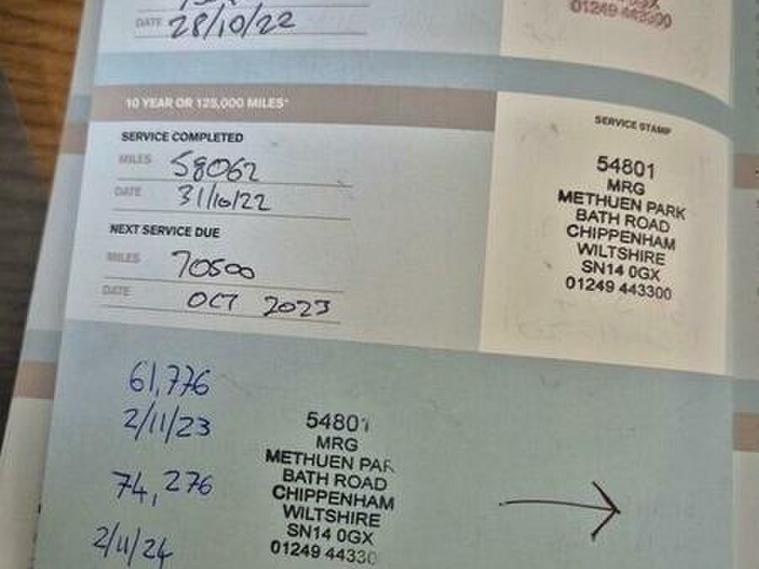 DATE 28/10/22
01249 443300
10 YEAR OR 125,000 MILES*
SERVICE COMPLETED
MILES 58062
DATE 31/10/22
NEXT SERVICE DUE
MILES 70500
DATE OCT 2023
SERVICE STAMP
54801
MRG
METHUEN PARK
BATH ROAD
CHIPPENHAM
WILTSHIRE
SN14 0GX
01249 443300
61,776
2/11/23
74,276
2/11/24
54801
MRG
METHUEN PAR
BATH ROAD
CHIPPENHAM
WILTSHIRE
SN14 0GX
01249 44330